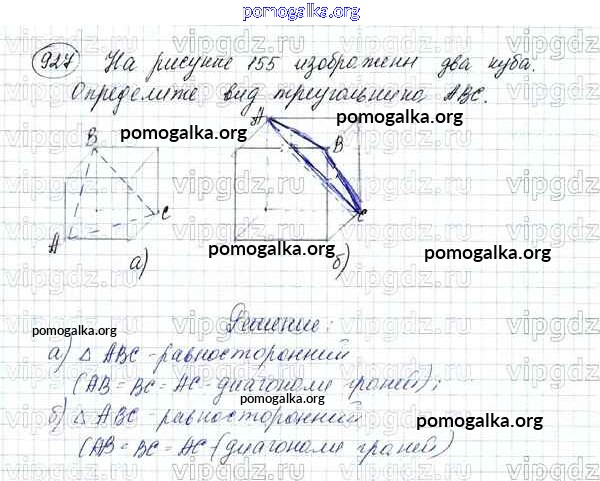 pomogalka.org
927 На рисунке 155 изображены два куба.
Определите вид треугольника АВС.
pomogalka.org
pomogalka.org
А
В
В
С
С
А
pomogalka.org
pomogalka.org
а)
б)
Решение:
pomogalka.org
а) △ АВС - равносторонний
(АВ = ВС = АС - диагонали граней);
pomogalka.org
б) △ АВС - равносторонний
pomogalka.org
(АВ = ВС = АС (диагонали граней)
vipgdz.ru